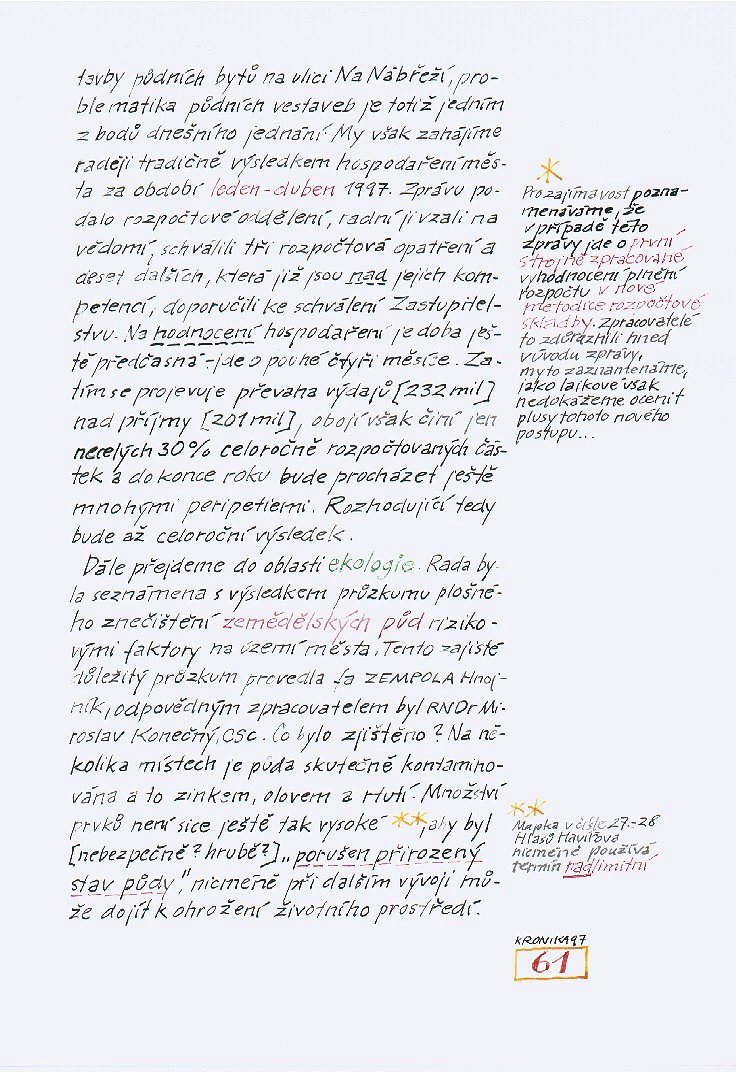 tavby půdních bytů na ulici Na Nábřeží, pro-
blematika půdních vestaveb je totiž jedním
z bodů dnešního jednání. My však zahájíme
raději tradičně výsledkem hospodaření měs-
ta za období leden-duben 1997. Zprávu po-
dalo rozpočtové oddělení, radní ji vzali na
vědomí, schválili tři rozpočtová opatření a
deset dalších, která již jsou nad jejich kom-
petencí, doporučili ke schválení Zastupitel-
stvu. Na hodnocení hospodaření je doba ješ-
tě předčasná - jde o pouhé čtyři měsíce. Za-
tím se projevuje převaha výdajů [232 mil]
nad příjmy [201 mil], obojí však činí jen
necelých 30% celoročně rozpočtovaných čás-
tek a do konce roku bude procházet ještě
mnohými peripetiemi. Rozhodující tedy
bude až celoroční výsledek.
Dále přejdeme do oblasti ekologie. Rada by-
la seznámena s výsledkem průzkumu plošné-
ho znečištění zemědělských půd riziko-
vými faktory na území města. Tento zajisté
důležitý průzkum provedla fa ZEMPOLA Hnoj-
ník, odpovědným zpracovatelem byl RNDr Mi-
roslav Konečný, CSc. Co bylo zjištěno? Na ně-
kolika místech je půda skutečně kontamino-
vána a to zinkem, olovem a rtutí. Množství
prvků není sice ještě tak vysoké **, aby byl
[nebezpečně? hrubě?] „porušen přirozený
stav půdy", nicméně při dalším vývoji mů-
že dojít k ohrožení životního prostředí.
*
Pro zajímavost pozna-
menáváme, že
v případě této
zprávy jde o první
strojně zpracované
vyhodnocení plnění
rozpočtu v nové
metodice rozpočtové
skladby. Zpracovatelé
to zdůraznili hned
v úvodu zprávy,
my to zaznamenáme,
jako laikové však
nedokážeme ocenit
plusy tohoto nového
postupu...
**
Mapka v čísle 27-28
Hlasů Havířova
nicméně používá
termín nadlimitní
KRONIKA97
61